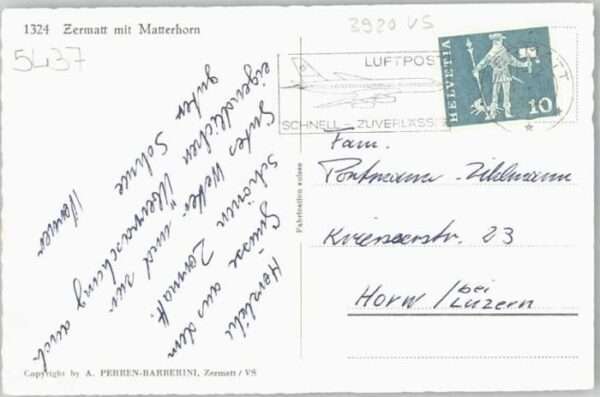 1324 Zermatt mit Matterhorn
3920 VS
5437
LUFTPOST
SCHNELL - ZUVERLÄSSI
HELVETIA
10
TT
Herzliche
Grüsse aus dem
schönen Zermatt.
Gutes Wetter und zur
eigendlichen Überraschung auch
guter Schnee
Werner
Fabrication suisse
Fam.
Portmann - Zihlmann
Krienserstr. 23
Horw / bei
Luzern
Copyright by A. PERREN-BARBERINI, Zermatt / VS